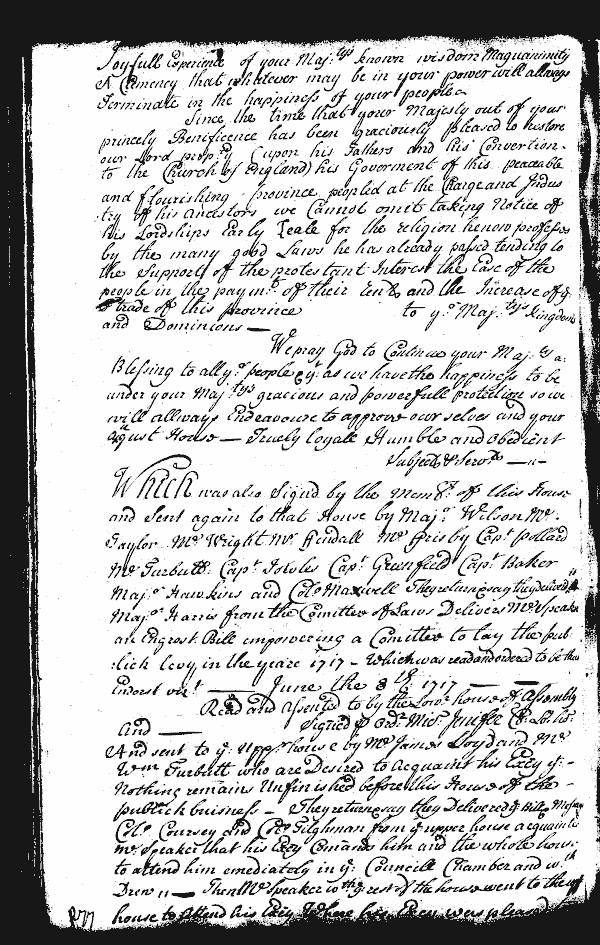 Joyfull Experience of your Maj.tys known wisdom Magnanimity
& Clemency that whatever may be in your power will allways
Terminate in the happiness of your people
Since the time that your Majesty out of your
princely Benificence has been graciously pleased to restore
our Lord prop.ry (upon his Fathers and his Convertion
to the Church of England) his Goverment of this peaceable
and flourishing province peopled at the Charge and Indus
try of his ancestors we Cannot omitt taking Notice of
his Lordships Early Zeale for the religion he now professes
by the many good Laws he has already passed tending to
the Support of the protestant Interest the Ease of the
people in the paym.t off their Rents and the Increase of y.e
trade of this province to y.r Maj.tys Kingdoms
and Dominions —
We pray God to Continue your Maj.ty a
Blessing to all y.r people & y.t as we have the happiness to be
under your Maj.tys gracious and powerfull protection so we
will allways Endeavoure to approve our selves and your
August House — Truely loyall Humble and obedient
Subjects & Serv.ts —"—
Which was also Signd by the Mem.rs off this House
and Sent again to that House by Maj.r Wilson M.r
Taylor M.r Wright M.r Kendall M.r Frisby Cap.t Pollard
M.r Turbutt Cap.t Cap.t Greenfield Cap.t Baker
Maj.r Hawkins and Coll.o Maxwell They return & say they delivered it
Maj.r Harris from the Comittee of Laws Delivers M.r Speaker
an Engrost Bill empowering a Comittee to lay the pub
lick Levy in the yeare 1717 – Which was read and ordered to be thus
Endorst viz.t — June the 8.th 1717 — —
Read and assented to by the Low.r house of Assembly
and — Signed p ord.r Mich. Jenifer Cl. Lo. Ho.
And sent to y.e upp.r house by M.r James Lloyd and M.r
W.m Turbutt who are Desired to acquaint his Ex.cy y.t
Nothing remains Unfinished before this House off the
publick buisness – They return & say they Delivered y.e Bill & Message
Col.o Coursey and Col.o Tilghman from y.e upper house acquaints
M.r Speaker that his Ex.cy Comands him and the whole house
to attend him emediately in y.e Councill Chamber and w.th
Drew " — Then M.r Speaker w.th y.e rest of the house went to the upp.r
house to Attend his Ex.cy Where his Ex.cy was pleased